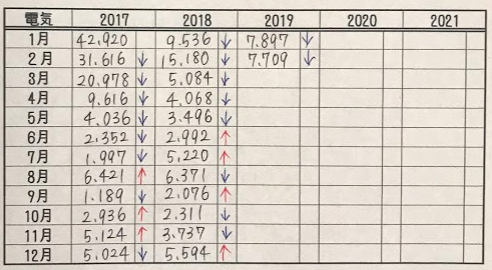 電気 2017 2018 2019 2020 2021
1月 42,920 9.536 ↓ 7.897 ↓
2月 31.616 ↓ 15.180 ↓ 7.709 ↓
3月 20.978 ↓ 5.084 ↓
4月 9.616 ↓ 4.068 ↓
5月 4.036 ↓ 3.496 ↓
6月 2.352 ↓ 2.992 ↑
7月 1.997 ↓ 5,220 ↑
8月 6.421 ↑ 6.371 ↓
9月 1.189 ↓ 2.076 ↑
10月 2.936 ↑ 2.311 ↓
11月 5.124 ↑ 3.737 ↓
12月 5.024 ↓ 5.594 ↑